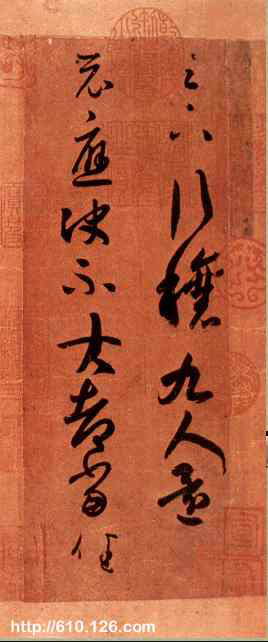 足下行穰九人還
示應決不大都當佳
http://610.126.com